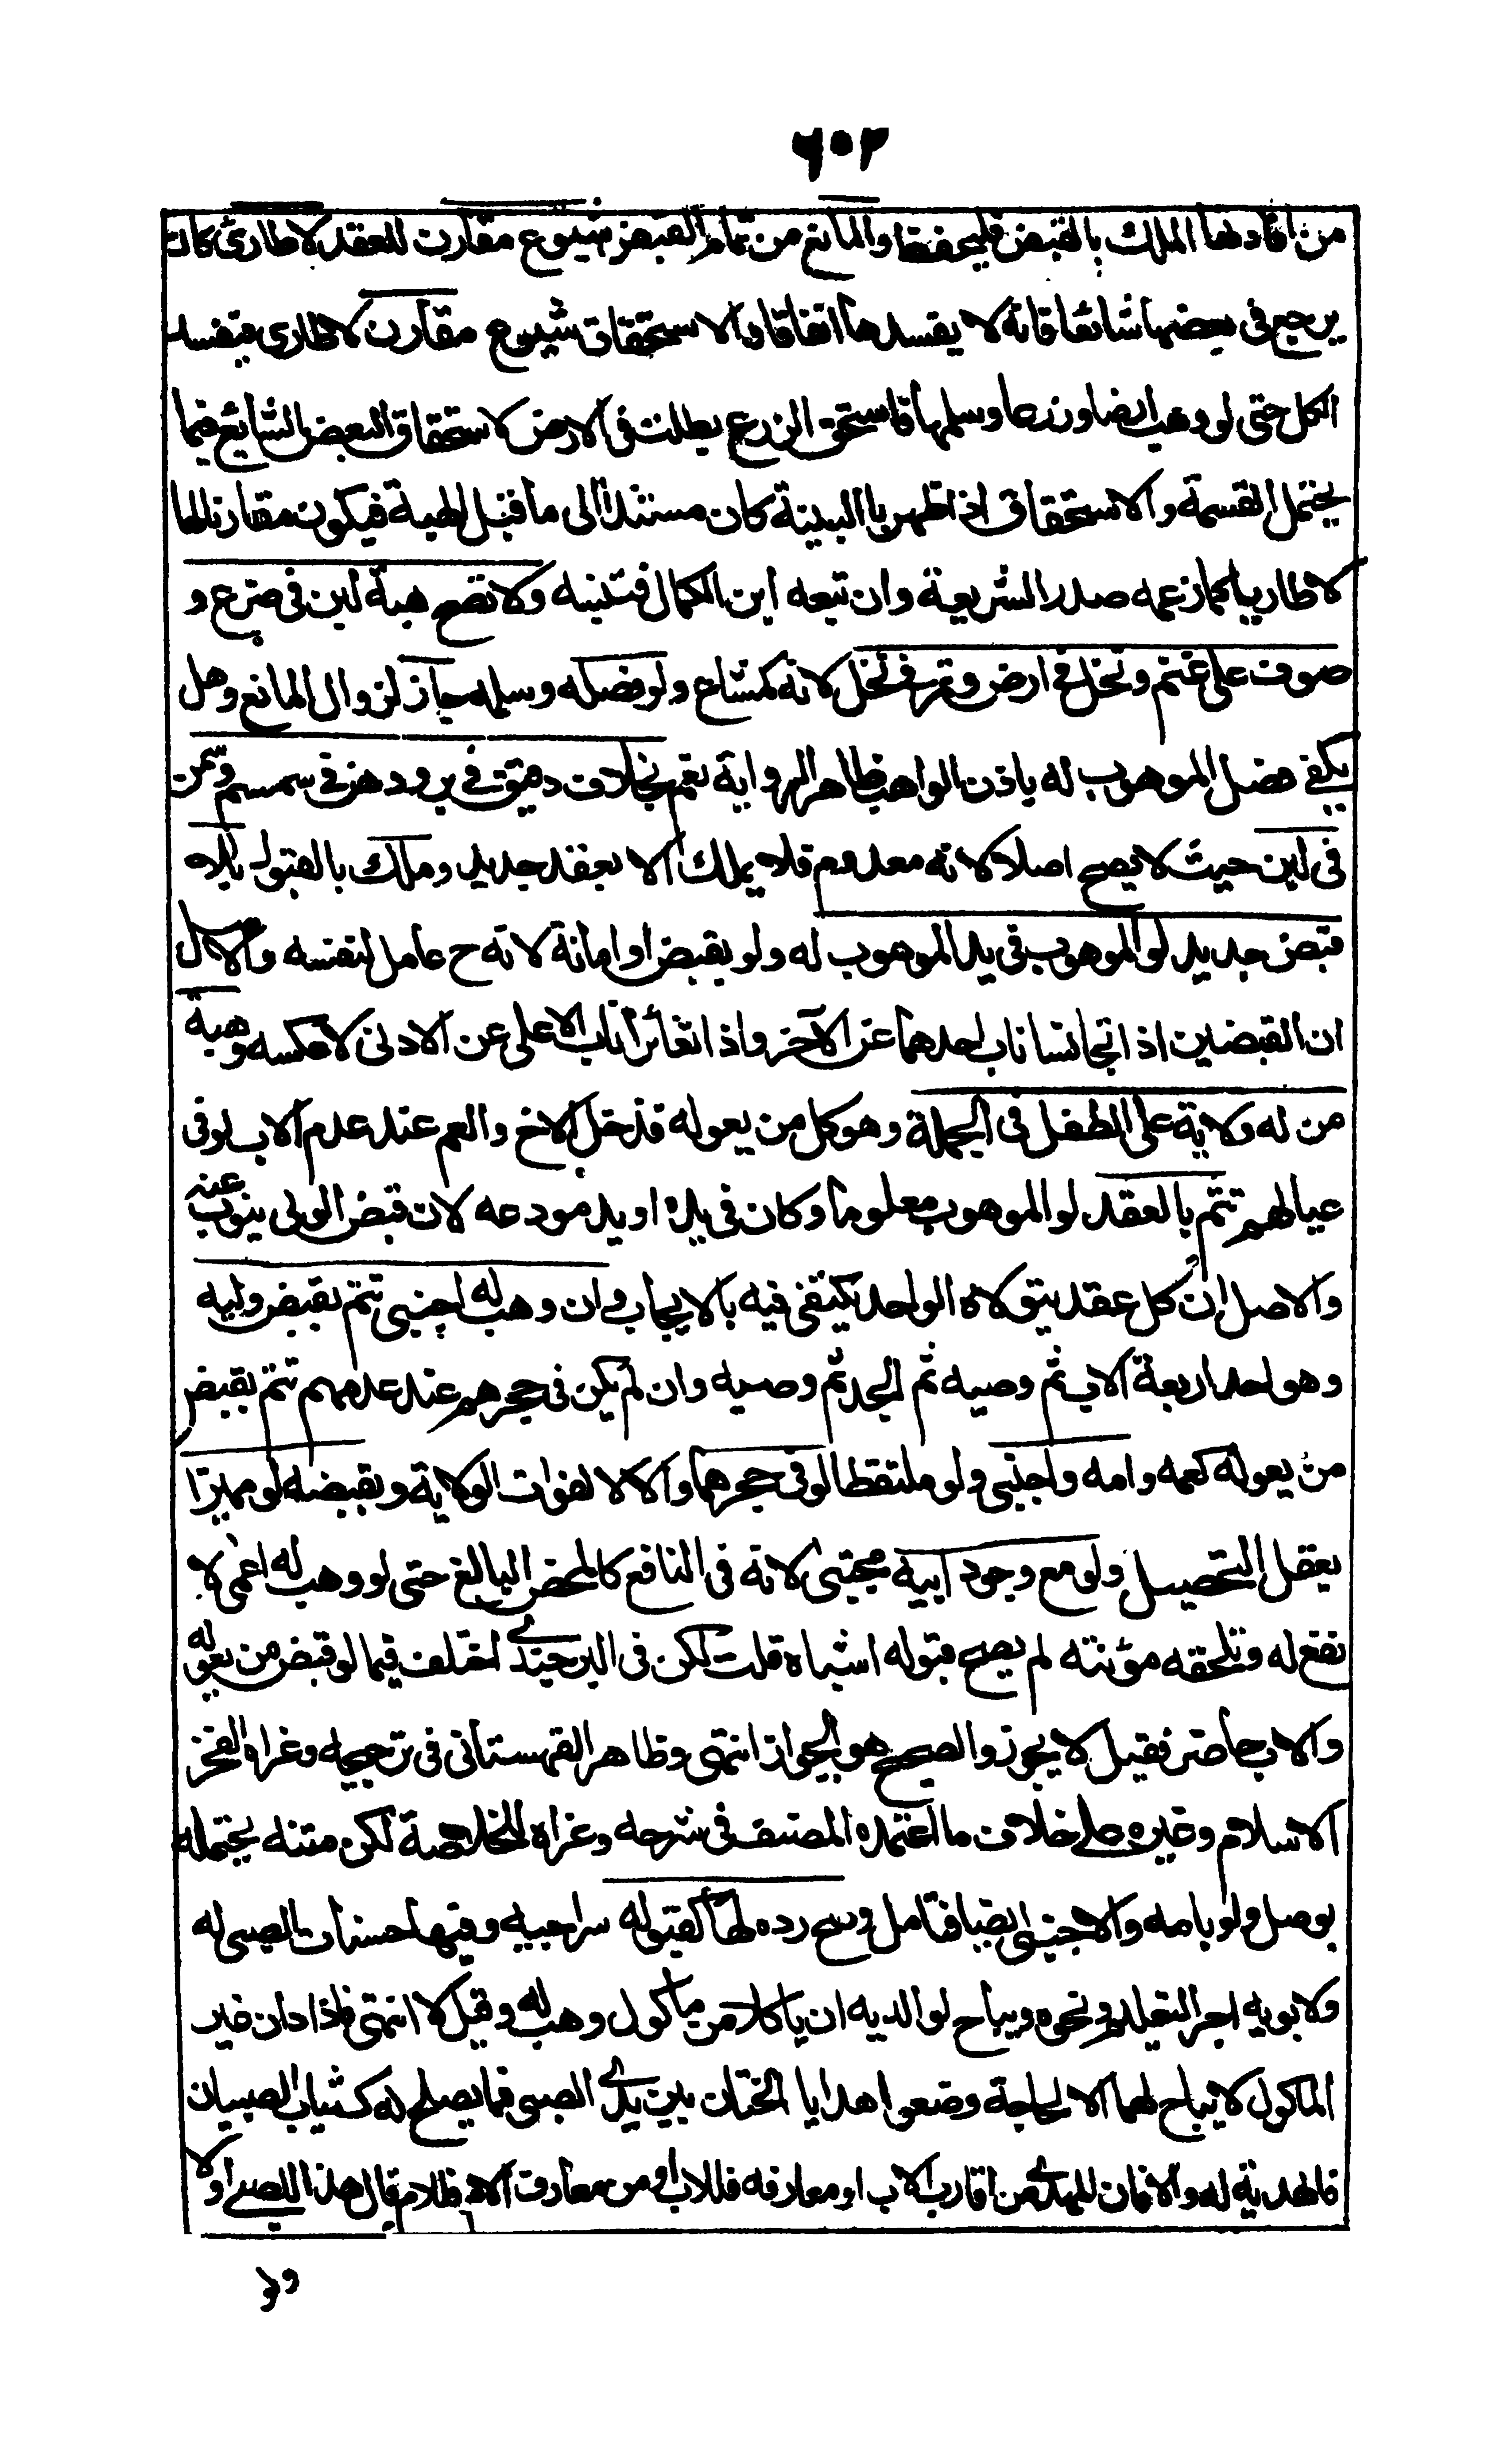 ٦٠٢
من افادتها الملك بالقبض فليحفظ والمانع من تمام القبض شيوع مقارن للعقد لا طارئ كان
يرجع في بعضها شائعا فانه لا يفسدها اتفاقا والاستحقاق شيوع مقارن لا طارى فيفسد
الكل حتى لو وهب ارضا وزرعا وسلمها فاستحق الزرع بطلت في الارض لاستحقاق البعض الشايع فيما
يحتمل القسمة والاستحقاق اذا ظهر باالبينة كان مستندا الى ما قبل الهبة فيكون مقارنا لها
لا طاريا كما زعمه صدر الشريعة وان تبعه ابن الكمال فتنبه ولا تصح هبة لبن في ضرع و
صوف على غنم ونخل في ارض وتمر في نخل لانه كمشاع ولو فصله وسلمه جاز لزوال المانع وهل
يكفي فصل الموهوب له باذن الواهب ظاهر الرواية نعم بخلاف دقيق في بر ودهن في سمسم وسمن
في لبن حيث لا يصح اصلا لانه معدوم فلا يملك الا بعقد جديد وملك بالقبول بلا
قبض جديد لو الموهوب في يد الموهوب له ولو بقبض او امانة لانه ح عامل لنفسه والاصل
ان القبضين اذا تجانسا ناب احدهما عن الآخر واذا تغائرا ناب الاعلى عن الادنى لا عكسه وهبة
من له ولاية على الطفل في الجملة وهو كل من يعوله فدخل الاخ والعم عند عدم الاب لو في
عيالهم تتم بالعقد لو الموهوب معلوما وكان في يده او يد مودعه لان قبض الولي ينوب عنه
والاصل ان كل عقد يتولاه الواحد يكتفى فيه بالايجاب وان وهب له اجنبى تتم بقبض وليه
وهو احد اربعة الاب ثم وصيه ثم الجد ثم وصيه وان لم يكن في حجرهم عند عدمهم تتم بقبض
من يعوله كعمه وامه واجنبى ولو ملتقطا لو في حجرهما والا لا لفوات الولاية وبقبضه لو مميزا
يعقل التحصيل ولو مع وجود ابيه مجتبى لانه في النافع المحض كالبالغ حتى لو وهب له اعمى لا
نفع له وتلحقه مؤنته لم يصح قبوله اشباه قلت لكن في البرجندى اختلف فيما لو قبض من يعوله
والاب حاضر فقيل لا يجوز والصحيح هو الجواز انتهى وظاهر القهستانى في ترجيحه وعزاه لفخر
الاسلام وغيره على خلاف ما اعتمده المصنف في شرحه وعزاه للخلاصة لكن متنه يحتمله
بوصل ولو بامه والاجنبى ايضا فتامل وصح رده لها كقبوله سراجيه وفيها حسنات الصبى له
ولابويه اجر التعليم ونحوه ويباح لوالديه ان ياكلا من ماكول وهب له وقيل لا انتهى فاذا دان غير
الماكول لا يباح لهما الا لحاجة وضعوا هدايا الختان بين يدى الصبى فما يصلح له كثياب الصبيان
فالهدية له والا فان للمهدى من اقارب الاب او معارفه فللاب او من معارف الام فللام قال هذا للصبى او لا